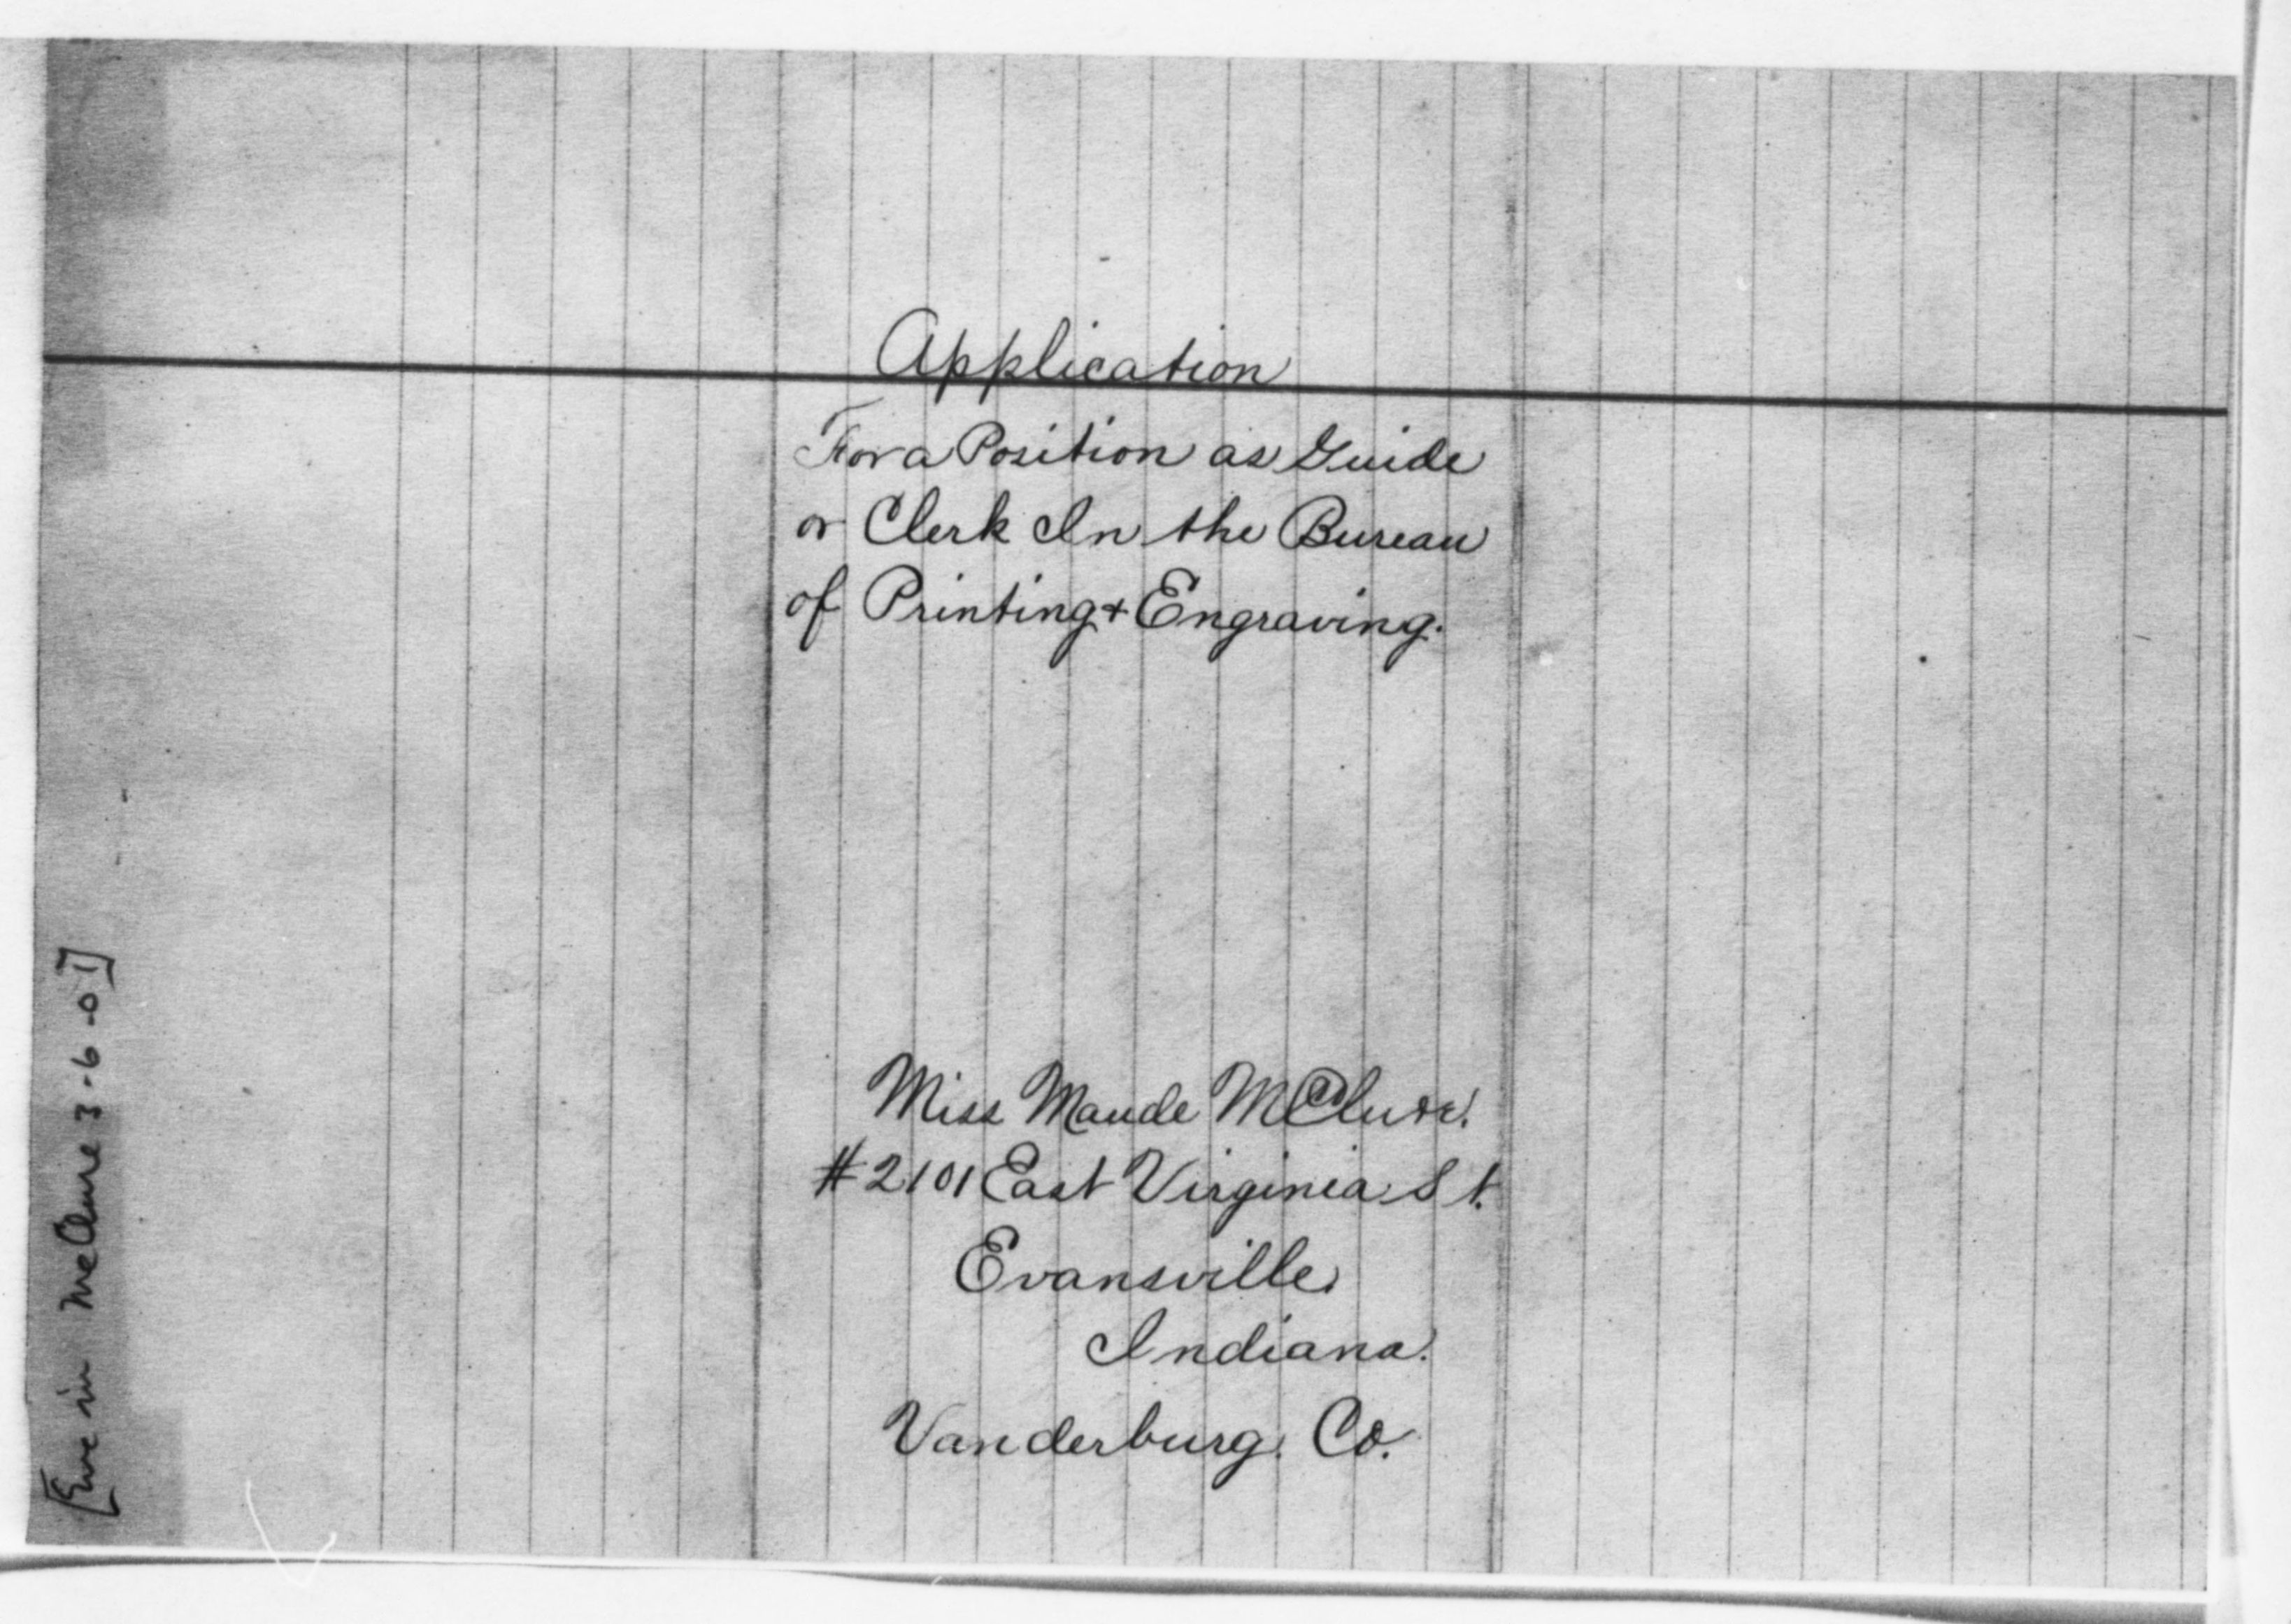 Application
For a Position as Guide
or Clerk In the Bureau
of Printing + Engraving.
Miss Maude McClure.
#2101 East Virginia St.
Evansville
Indiana.
Vanderburg. Co.
[Enc in McClure 3-6-01]